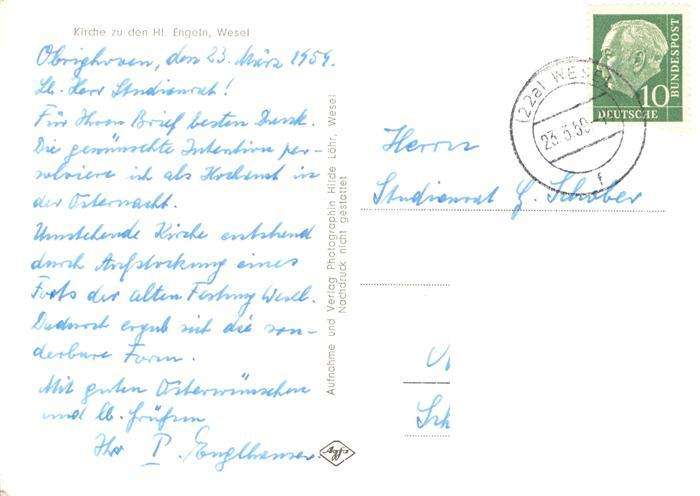 Kirche zu den Hl. Engeln, Wesel
Obrighoven, den 23. März 1959.
Lb. Herr Studienrat!
Für Ihren Brief besten Dank.
Die gewünschte Intention per-
solviere ich als Hochamt in
der Osternacht.
Umstehende Kirche entstand
durch Aufstockung eines
Forts der alten Festung Wesel.
Dadurch ergab sich die son-
derbare Form.
Mit guten Osterwünschen
und lb. Grüßen
Ihr P. Englhauser.
Aufnahme und Verlag Photographin Hilde Löhr, Wesel
Nachdruck nicht gestattet
Agfa
(22a) WESEL
23.3.59
f
10
DEUTSCHE
BUNDESPOST
Herrn
Studienrat G. Schober